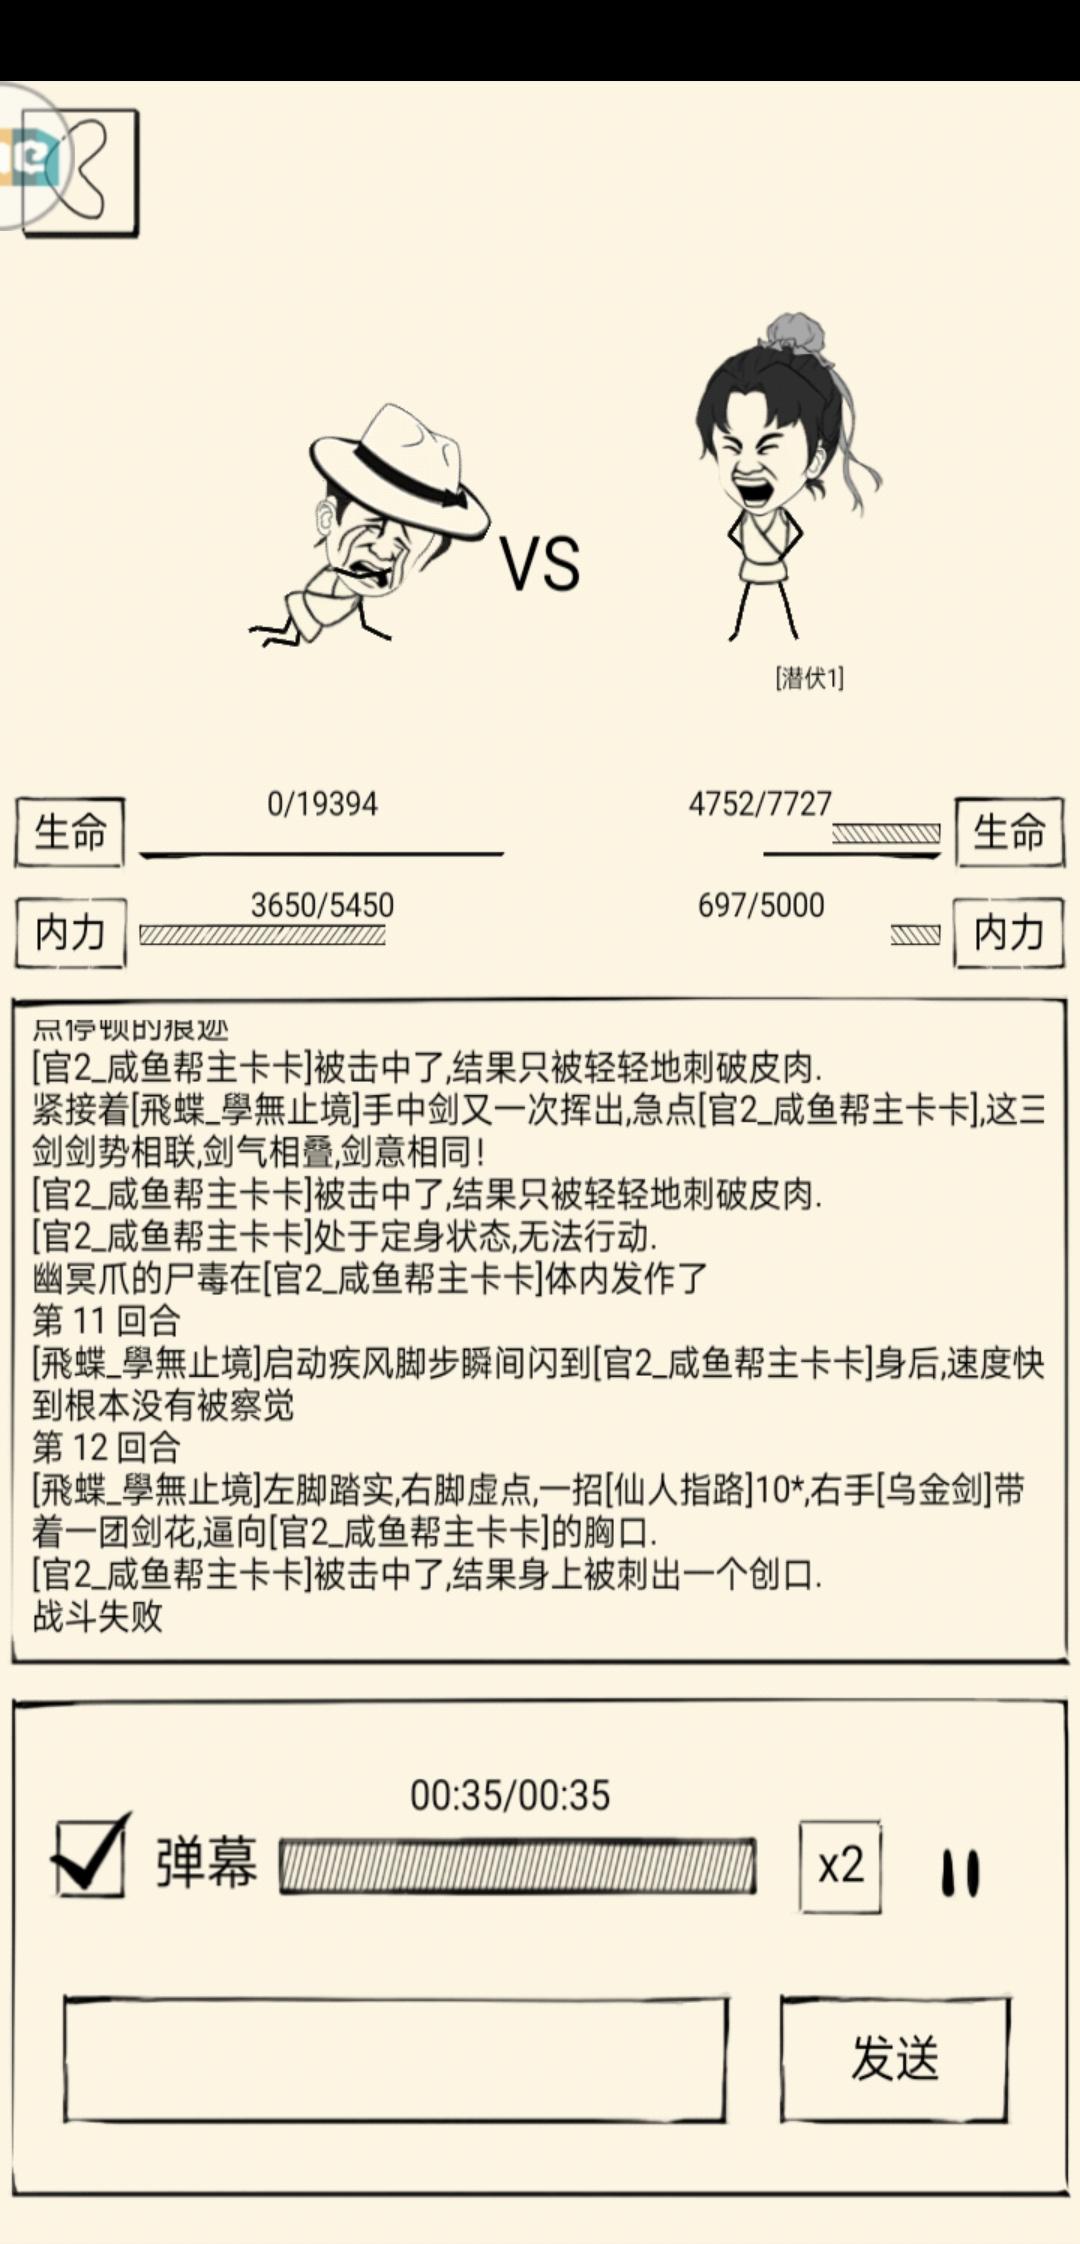 VS
[潜伏1]
0/19394
4752/7727
生命
生命
3650/5450
697/5000
内力
内力
点停顿的痕迹
[官2_咸鱼帮主卡卡]被击中了,结果只被轻轻地刺破皮肉.
紧接着[飛蝶_學無止境]手中剑又一次挥出,急点[官2_咸鱼帮主卡卡],这三
剑剑势相联,剑气相叠,剑意相同!
[官2_咸鱼帮主卡卡]被击中了,结果只被轻轻地刺破皮肉.
[官2_咸鱼帮主卡卡]处于定身状态,无法行动.
幽冥爪的尸毒在[官2_咸鱼帮主卡卡]体内发作了
第 11 回合
[飛蝶_學無止境]启动疾风脚步瞬间闪到[官2_咸鱼帮主卡卡]身后,速度快
到根本没有被察觉
第 12 回合
[飛蝶_學無止境]左脚踏实,右脚虚点,一招[仙人指路]10*,右手[乌金剑]带
着一团剑花,逼向[官2_咸鱼帮主卡卡]的胸口.
[官2_咸鱼帮主卡卡]被击中了,结果身上被刺出一个创口.
战斗失败
00:35/00:35
弹幕
x2
发送